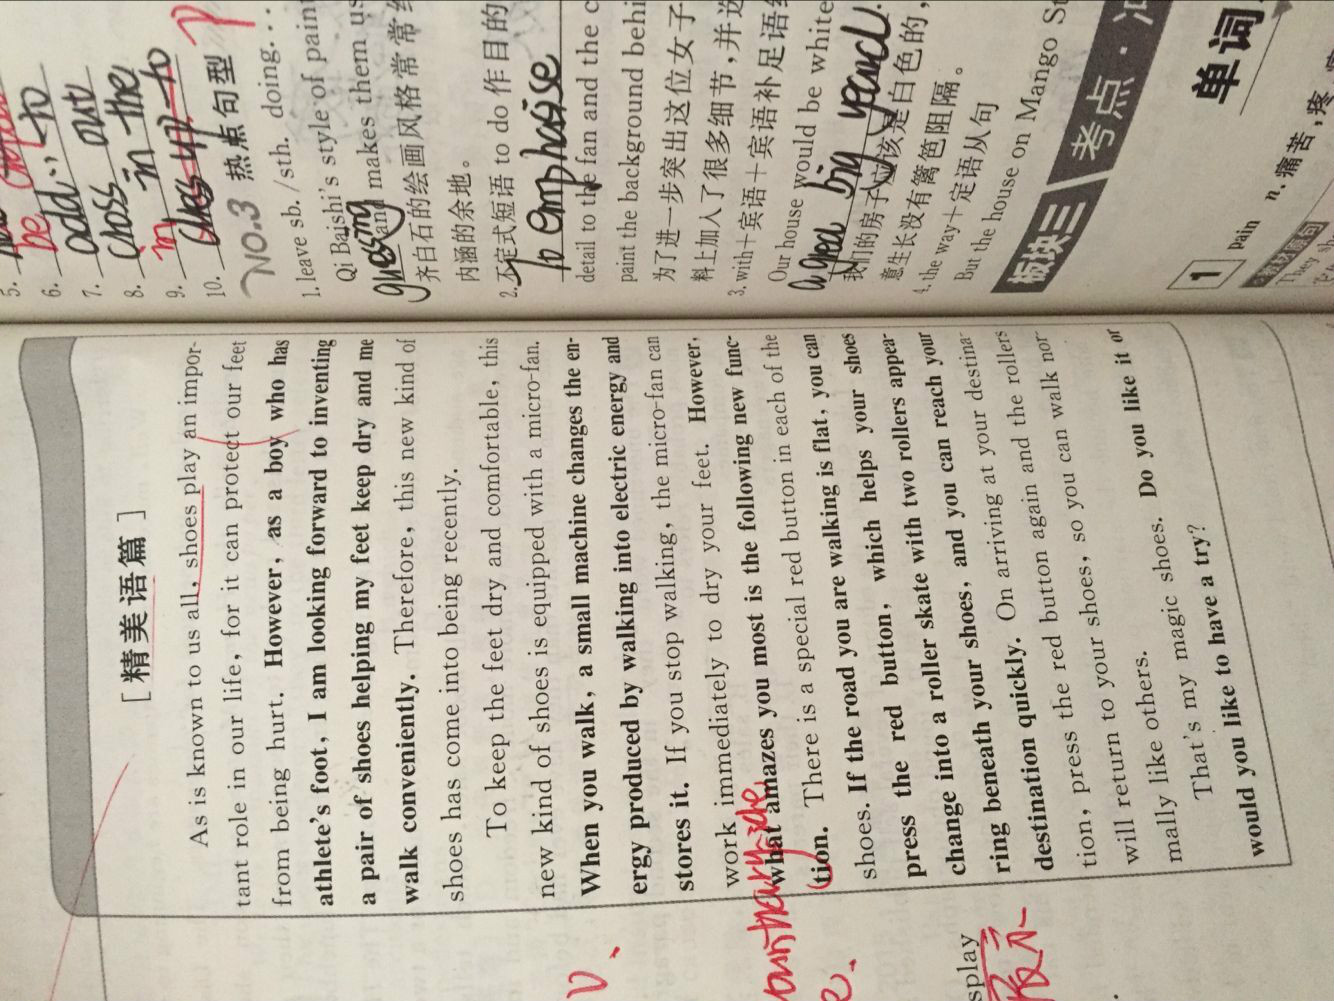 [精美语篇]
As is known to us all, shoes play an impor-
tant role in our life, for it can protect our feet
from being hurt. However, as a boy who has
athlete's foot, I am looking forward to inventing
a pair of shoes helping my feet keep dry and me
walk conveniently. Therefore, this new kind of
shoes has come into being recently.
To keep the feet dry and comfortable, this
new kind of shoes is equipped with a micro-fan.
When you walk, a small machine changes the en-
ergy produced by walking into electric energy and
stores it. If you stop walking, the micro-fan can
work immediately to dry your feet. However,
what amazes you most is the following new func-
tion. There is a special red button in each of the
shoes. If the road you are walking is flat, you can
press the red button, which helps your shoes
change into a roller skate with two rollers appear-
ring beneath your shoes, and you can reach your
destination quickly. On arriving at your destina-
tion, press the red button again and the rollers
will return to your shoes, so you can walk nor-
mally like others.
That's my magic shoes. Do you like it or
would you like to have a try?
splay
5.
6. be
7. add to
8. cross out
9. in in the
10.
NO.3 热点句型
1. leave sb./sth. doing...
Qi Baishi's style of paint
guessing and makes them us
齐白石的绘画风格常常给
内涵的余地。
2. 不定式短语 to do 作目的
to emphasise
detail to the fan and the c
paint the background behi
为了进一步突出这位女子
料上加入了很多细节,并选
3. with+宾语+宾语补足语结
Our house would be white
big yard.
我们的房子应该是白色的,
意生长没有篱笆阻隔。
4. the way+定语从句
But the house on Mango St
板块三 考点·
单词
1 Pain n. 痛苦;疼
教材原句
They